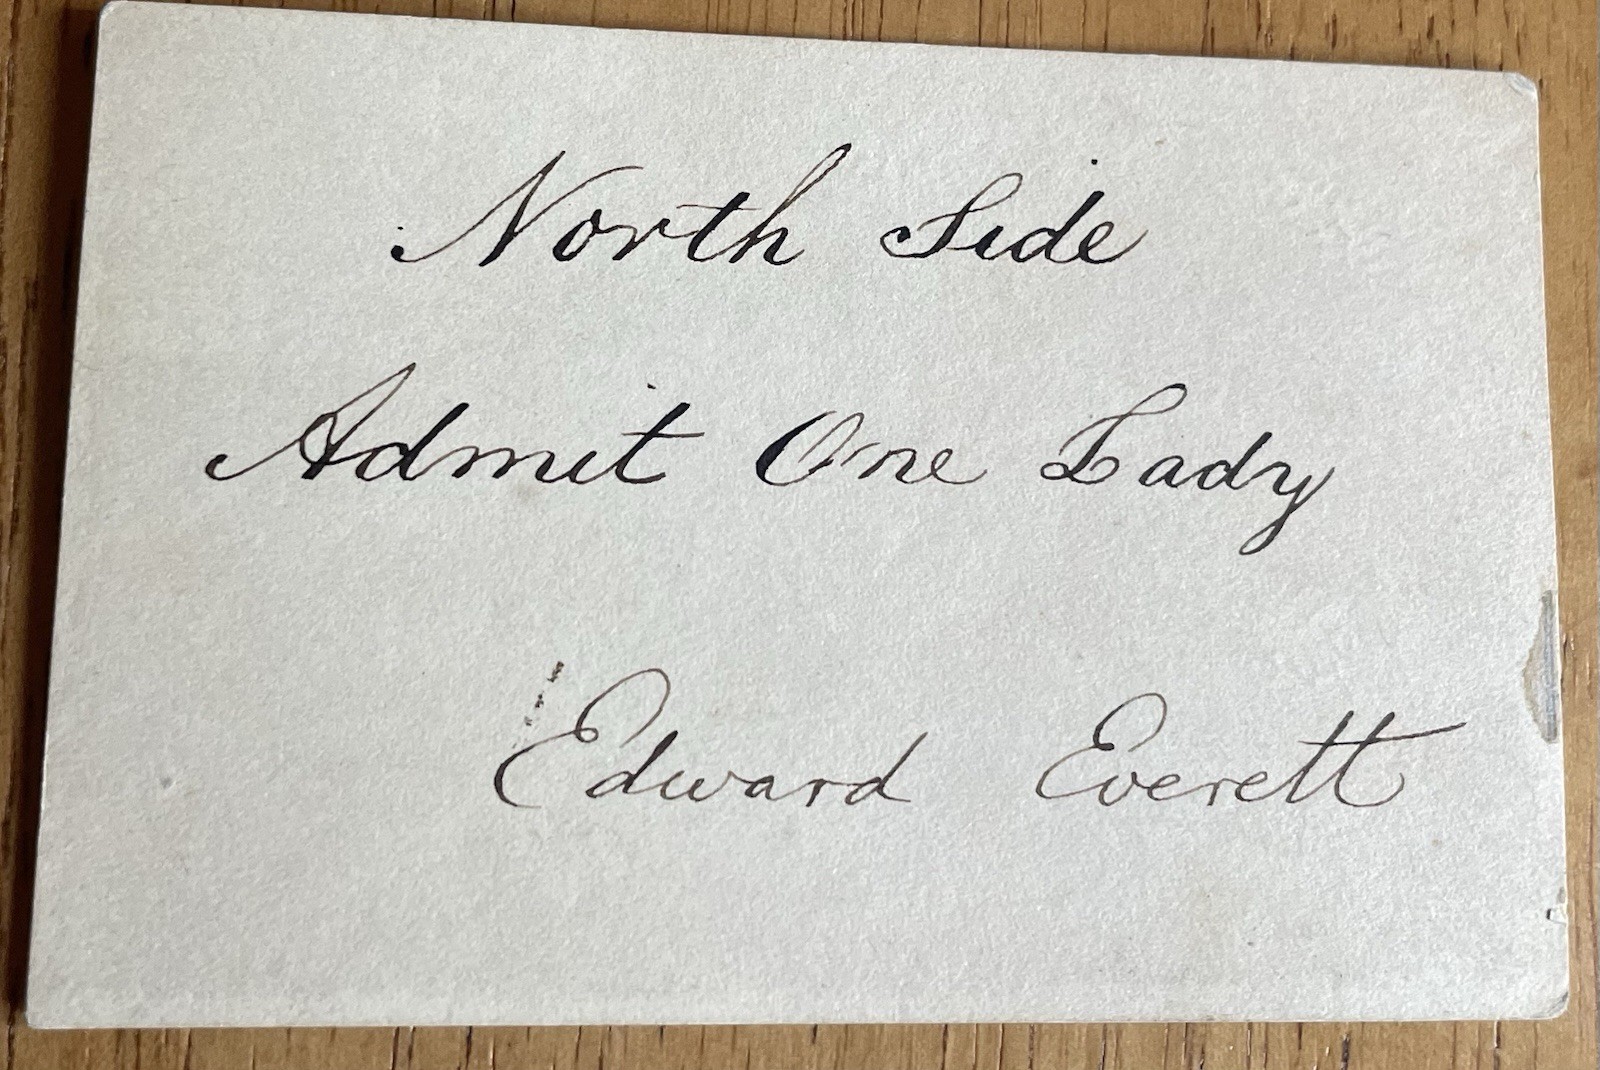 North Side
Admit One Lady
Edward Everett